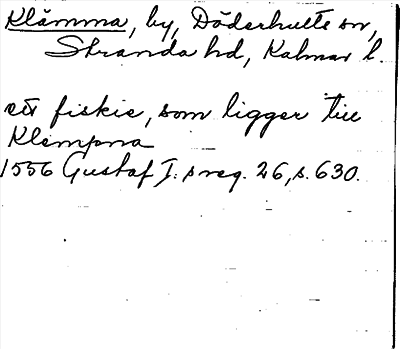 Klämma, by, Döderhults sn,
Stranda hd, Kalmar l.
ett fiskie, som ligger till
Klempna
1556 Gustaf I:s reg. 26, s. 630.